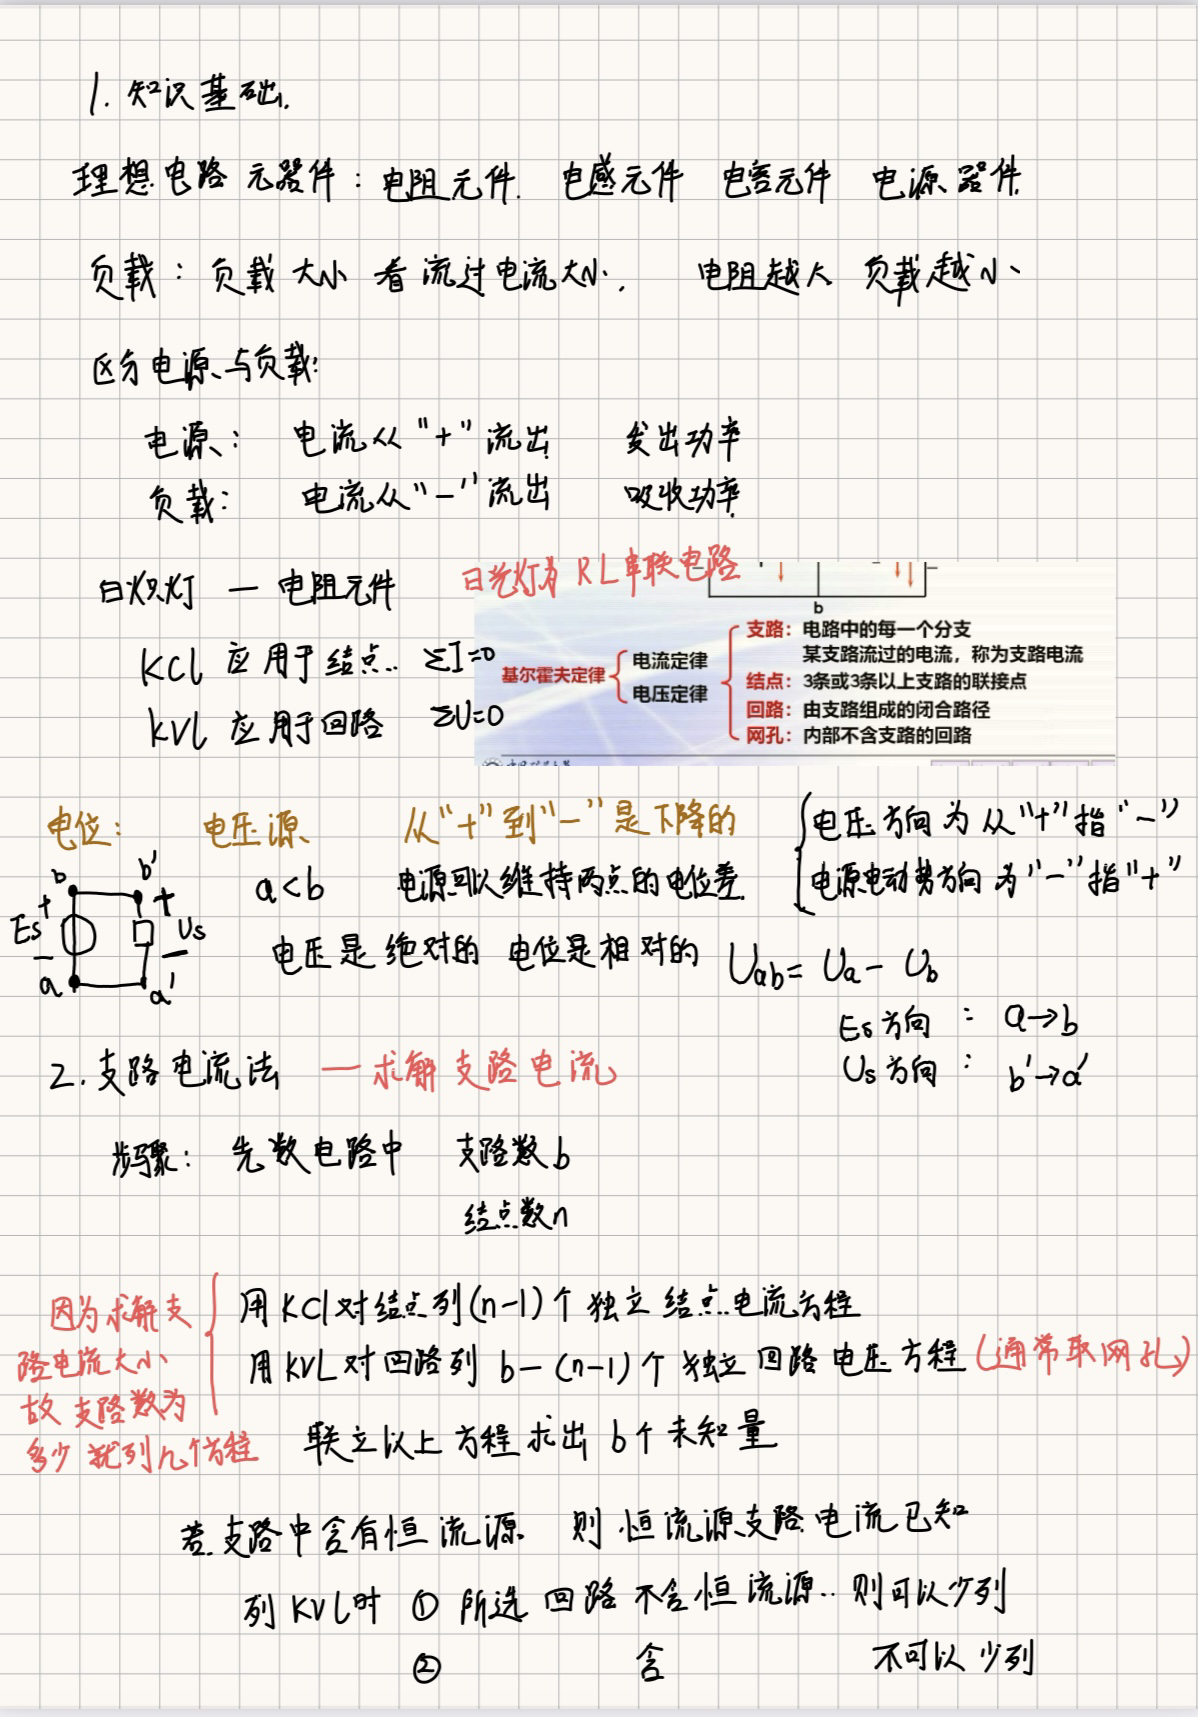 1. 知识基础.
理想电路元器件：电阻元件. 电感元件 电容元件 电源器件.
负载：负载大小看流过电流大小. 电阻越大 负载越小
区分电源与负载:
电源： 电流从“+”流出 发出功率
负载： 电流从“-”流出 吸收功率.
白炽灯 — 电阻元件
日光灯为RL串联电路
b
KCL 应用于结点.. ΣI=0
KVL 应用于回路 ΣU=0
基尔霍夫定律
电流定律
电压定律
支路：电路中的每一个分支
某支路流过的电流，称为支路电流
结点：3条或3条以上支路的联接点
回路：由支路组成的闭合路径
网孔：内部不含支路的回路
电位： 电压源 从“+”到“-”是下降的
电压方向为从“+”指“-”
a<b 电源可以维持两点的电位差.
电源电动势方向为“-”指“+”
b b'
+ +
Es Us
- -
a a'
电压是绝对的 电位是相对的 Uab= Ua- Ub
Es方向 : a→b
Us方向 : b'→a'
2. 支路电流法 —求解支路电流
步骤： 先数电路中 支路数b
结点数n
因为求解支
路电流大小
故支路数为
多少就列几个方程
用KCl对结点列(n-1)个独立结点电流方程
用KVL对回路列 b-(n-1)个独立回路电压方程(通常取网孔)
联立以上方程求出b个未知量
若支路中含有恒流源 则恒流源支路电流已知
列KVL时 ① 所选回路不含恒流源.. 则可以少列
② 含 不可以少列